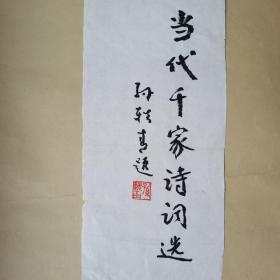 当代千家诗词选
孙轶青题